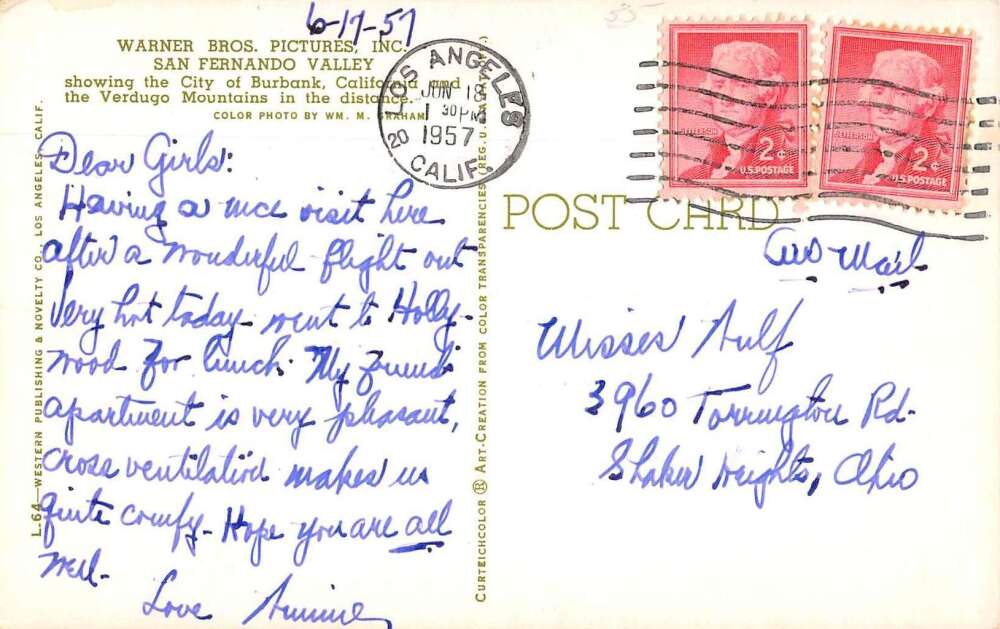 6-17-57
55-
WARNER BROS. PICTURES, INC.
SAN FERNANDO VALLEY
showing the City of Burbank, California and
the Verdugo Mountains in the distance.
COLOR PHOTO BY WM. M. GRAHAM
LOS ANGELES
JUN 18
1 30 PM
1957
20
CALIF.
JEFFERSON
2¢
U.S. POSTAGE
JEFFERSON
2¢
U.S. POSTAGE
POST CARD
Dear Girls:
Having a nice visit here
after a wonderful flight out
Very hot today - went to Holly-
wood for lunch. My friend's
apartment is very pleasant,
cross ventilation makes us
quite comfy - Hope you are all
well -
Love
Air Mail
Misses
3960 Torrington Rd.
Shaker Heights, Ohio
L.64—WESTERN PUBLISHING & NOVELTY CO., LOS ANGELES, CALIF.
CURTEICHCOLOR ® ART-CREATION FROM COLOR TRANSPARENCIES (REG. U.S.A.